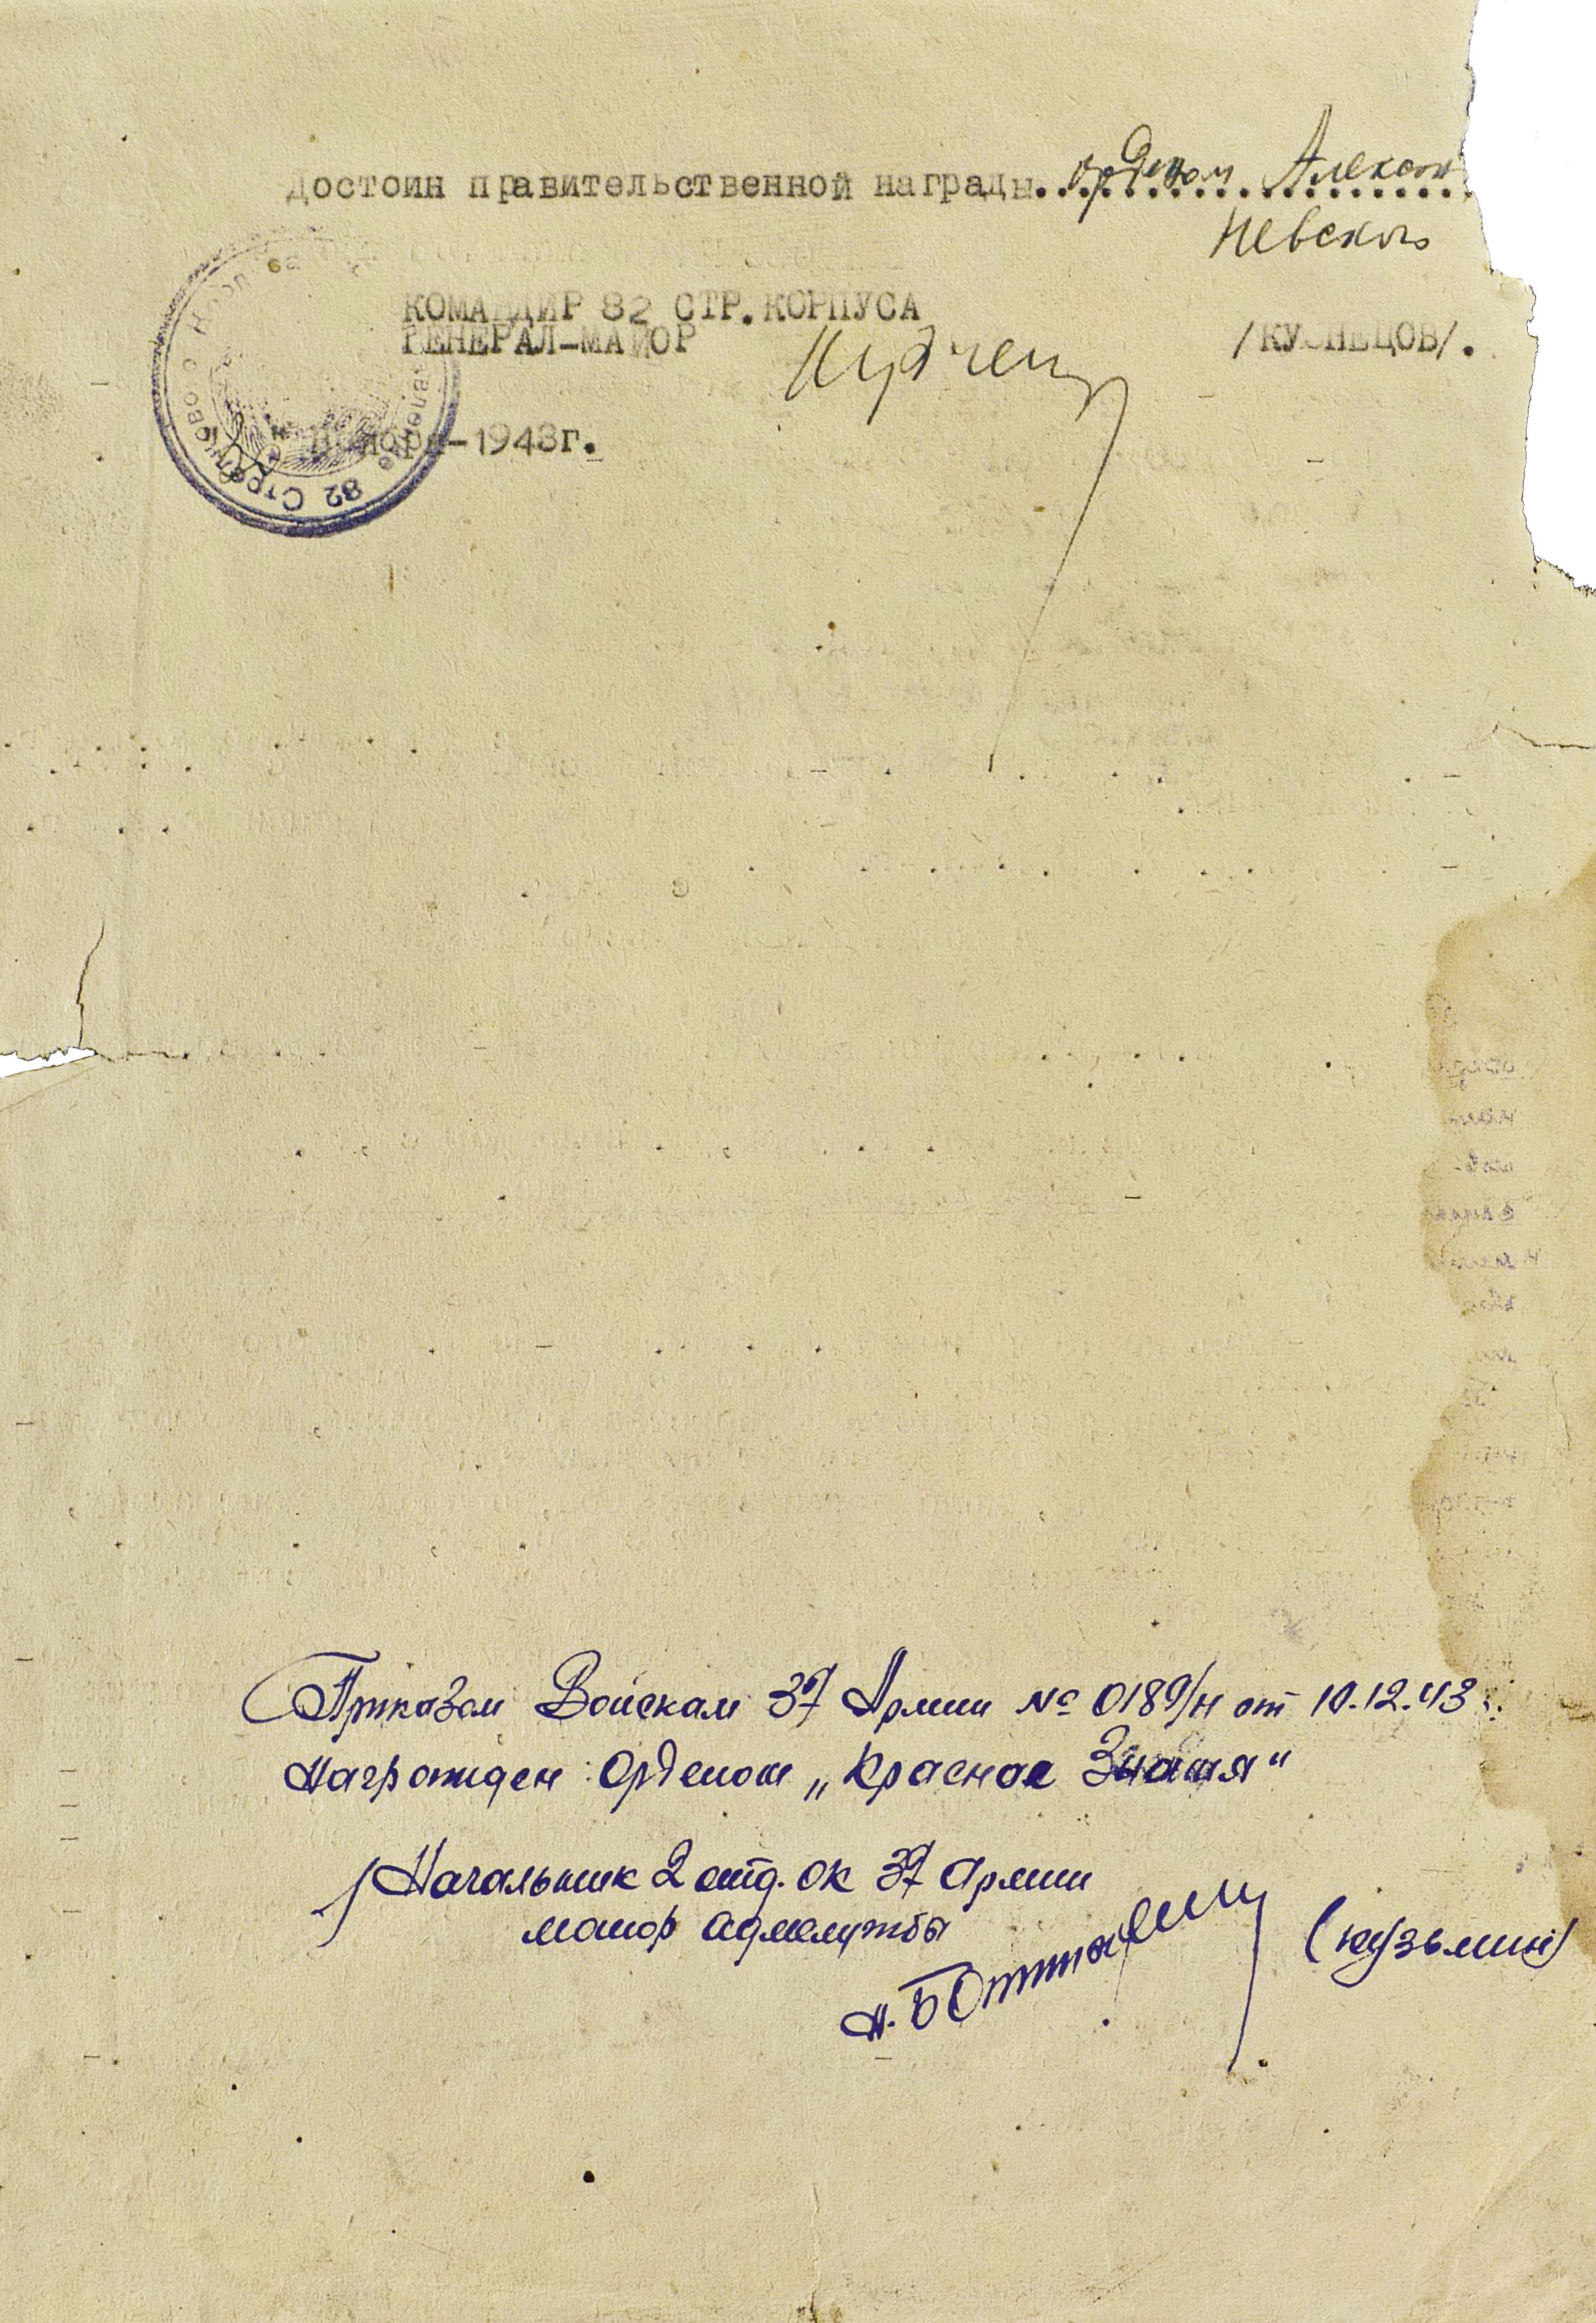 Достоин правительственной награды орденом Алексан
Невского
КОМАНДИР 82 СТР. КОРПУСА
ГЕНЕРАЛ-МАЙОР /КУЗНЕЦОВ/.
-1943г.
82 Стрелкового Корпуса
Приказом Войскам 37 Армии № 0189/н от 10.12.43г.
Награжден Орденом „Красное Знамя"
Начальник 2 отд. ОК 37 Армии
майор админслужбы
(Кузьмин)